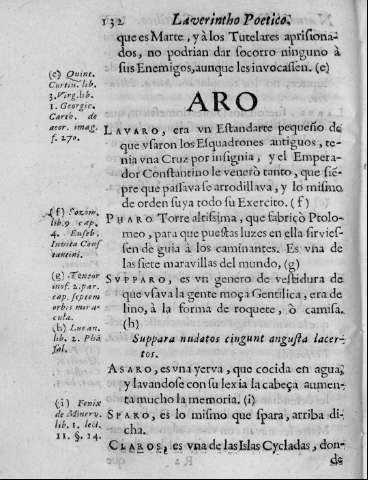 132 Laverintho Poetico.
que es Marte, y à los Tutelares aprisiona-
dos, no podrian dar socorro ninguno à
sus Enemigos, aunque les invocassen. (e)
(e) Quint.
Curtin. lib.
3. Virg. lib.
1. Georgic.
Carth. de
aeor. imag.
f. 270.
ARO
LAVARO, era vn Estandarte pequeño de
que vsaron los Esquadrones antiguos, te-
nia vna Cruz por insignia, y el Empera-
dor Constantino le venerò tanto, que siẽ-
pre que passava se arrodillava, y lo mismo
de orden suya todo su Exercito. (f)
(f) Sozom.
lib. 9 cap.
4. Euseb.
Invita Cons
tantini.
PHARO Torre altissima, que fabricò Ptolo-
meo, para que puestas luzes en ella sirvies-
sen de guia à los caminantes. Es vna de
las siete maravillas del mundo, (g)
(g) Textor
inof. 2. par.
cap. septem
orbis mira-
cula.
SVPPARO, es vn genero de vestidura de
que vsava la gente moça Gentilica, era de
lino, à la forma de roquete, ò camisa.
(h)
(h) Lucan.
lib. 2. Phã
sal.
Suppara nudatos cingunt angusta lacer-
tos.
ASARO, es vna yerva, que cocida en agua,
y lavandose con su lexia la cabeça aumen-
ta mucho la memoria. (i)
(i) Fenix
de Minerv.
lib. 1. lect.
11. §. 14.
SPARO, es lo mismo que spara, arriba di-
cha.
CLAROS, es vna de las Islas Cycladas, don-
de